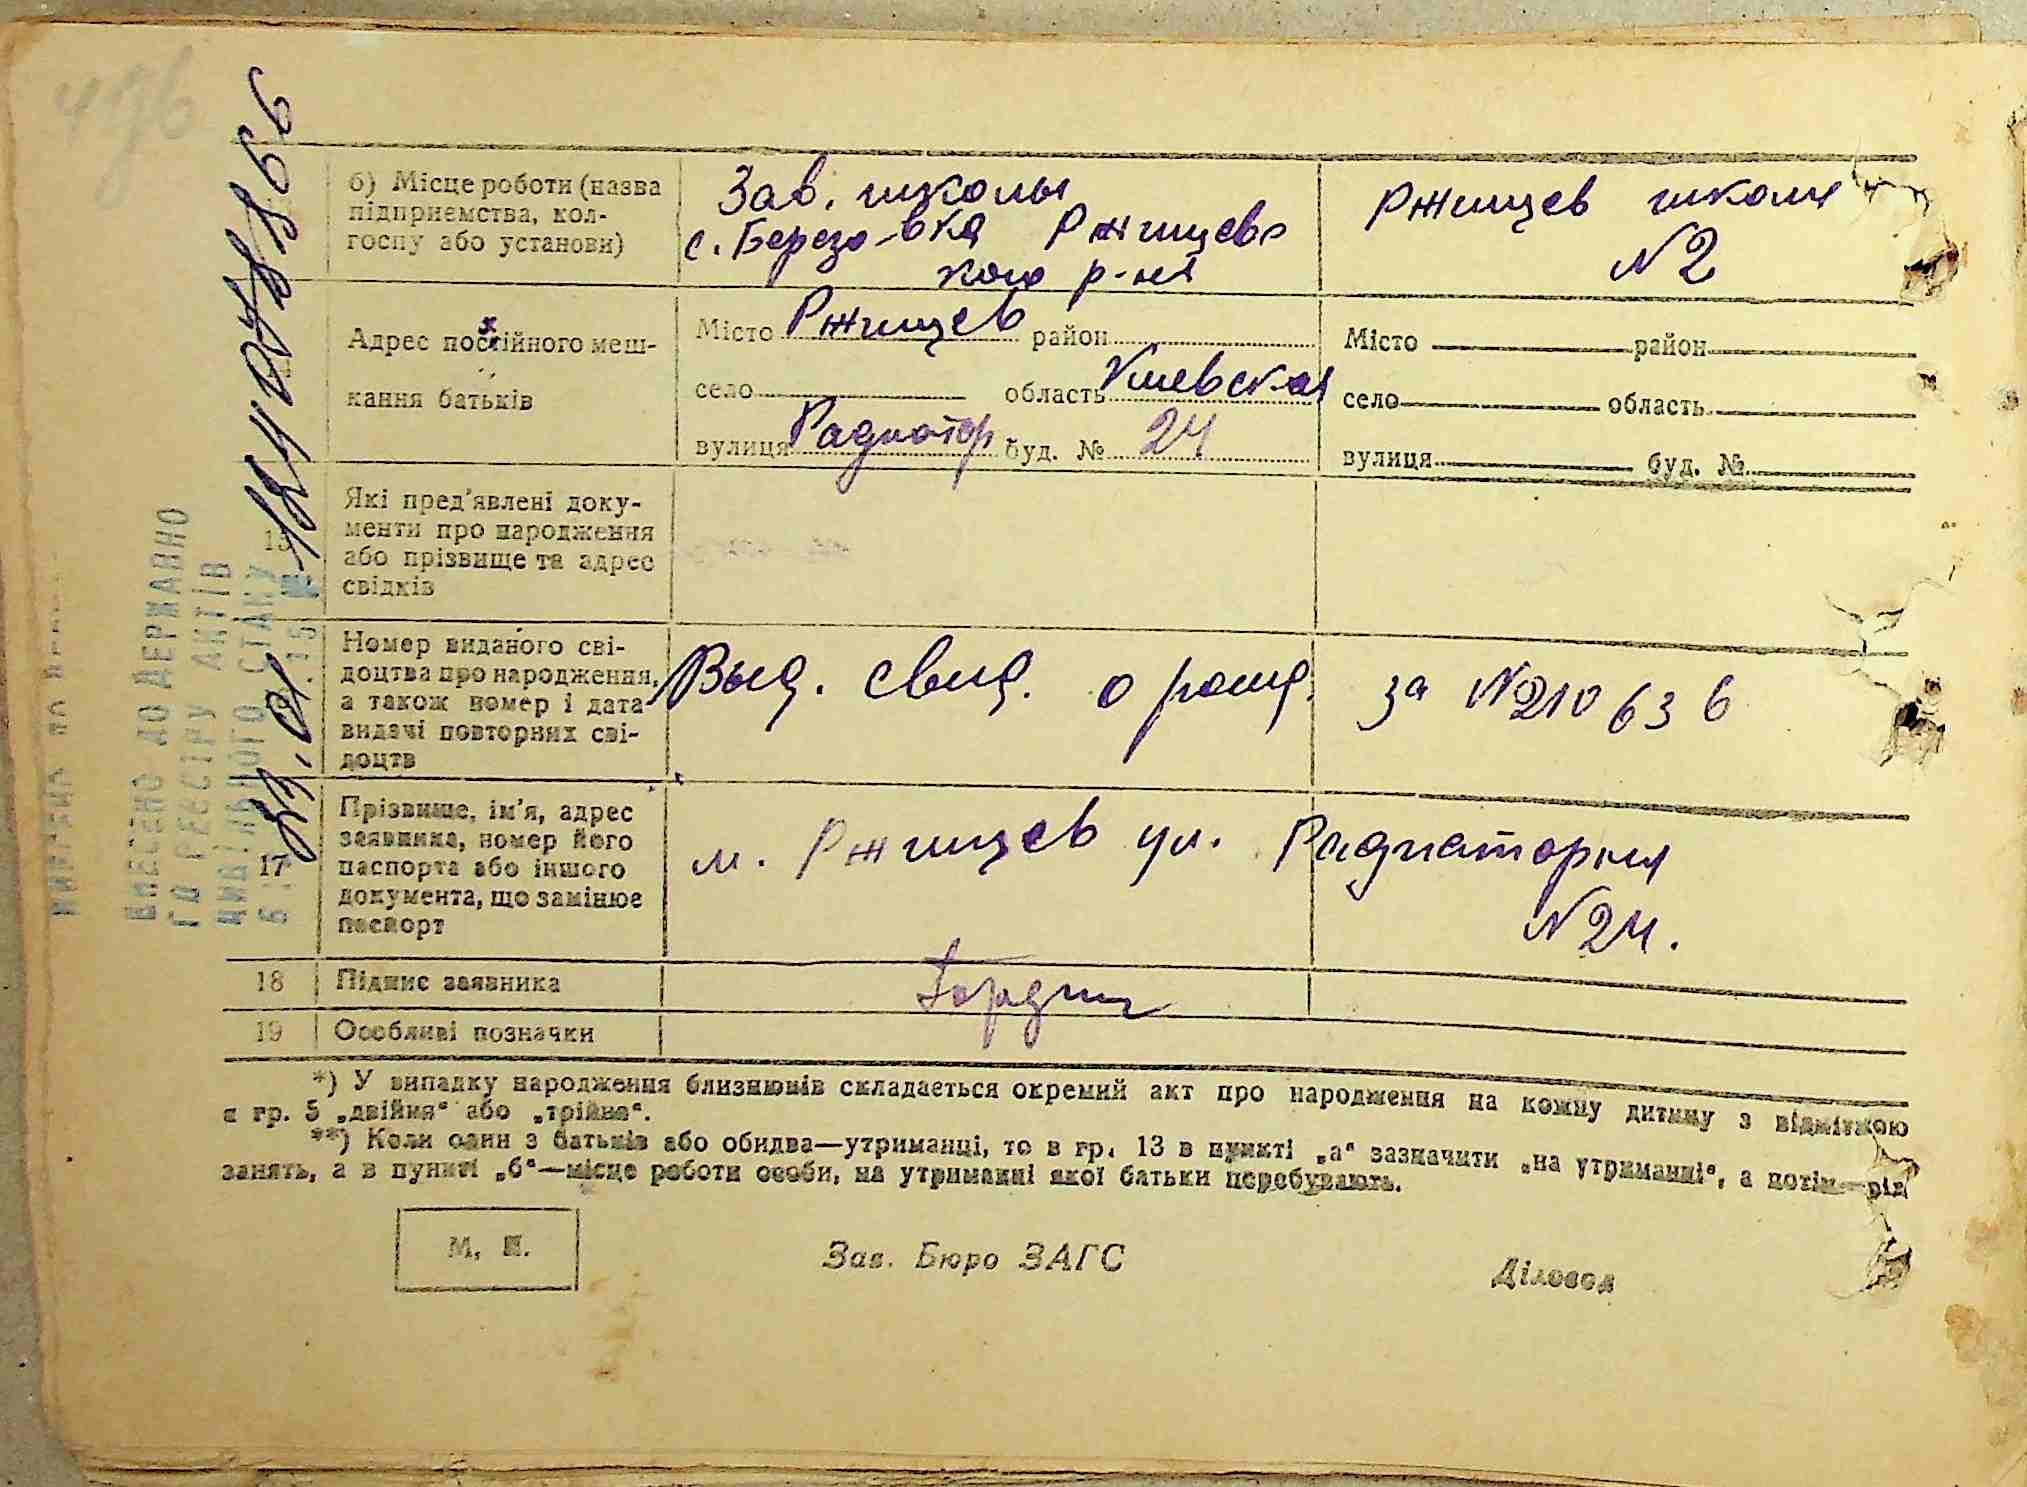 б) Місце роботи (назва
підприємства, кол-
госпу або установи)
Зав. школы
с. Березовка Ржищевс
кого р-на
Ржищев школа
№2
Адрес постійного меш-
кання батьків
Місто Ржищев район
село область Киевская
вулиця Радиатор буд. № 24
Місто район
село область
вулиця буд. №
15
Які пред'явлені доку-
менти про народження
або прізвище та адрес
свідків
Номер виданого сві-
доцтва про народження,
а також номер і дата
видачі повторних сві-
доцтв
Выд. свид. о рожд. за №210636
17
Прізвище, ім'я, адрес
заявника, номер його
паспорта або іншого
документа, що замінює
паспорт
м. Ржищев ул. Радиаторная
№24.
18 Підпис заявника
19 Особливі позначки
*) У випадку народження близнюків складається окремий акт про народження на кожну дитину з відміткою
в гр. 5 „двійня" або „трійня".
**) Коли один з батьків або обидва—утриманці, то в гр. 13 в пункті „а" зазначити „на утриманні", а потім—рід
занять, а в пункті „б"—місце роботи особи, на утриманні якої батьки перебувають.
М. П.
Зав. Бюро ЗАГС
Діловод
ВНЕСЕНО ДО ДЕРЖАВНО
ГО РЕЄСТРУ АКТІВ
ЦИВІЛЬНОГО СТАНУ